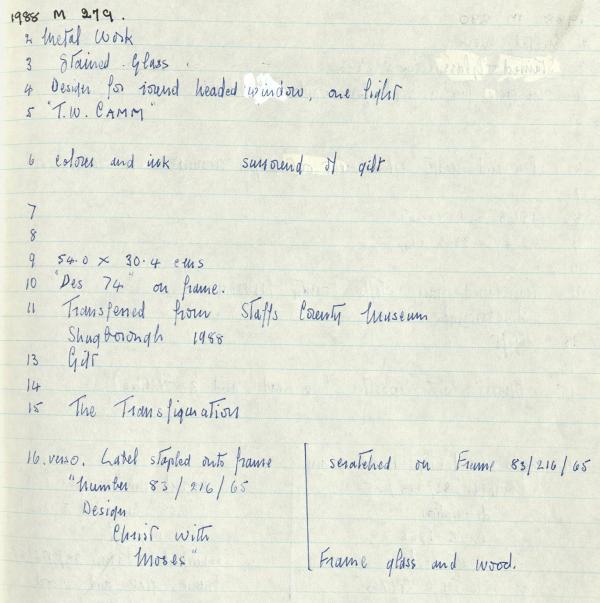 1988 M 279.
2 Metal Work
3 Stained Glass.
4 Design for round headed window, one light
5 "T.W. CAMM"
6 colour and ink surround of gilt
7
8
9 54.0 x 30.4 cms
10 "Des 74" on frame.
11 Transferred from Staffs County Museum
Shugborough 1988
13 Gift
14
15 The Transfiguration
16. verso. Label stapled onto frame
"Number 83/216/65
Design
Christ with
Moses"
scratched on Frame 83/216/65
Frame glass and wood.